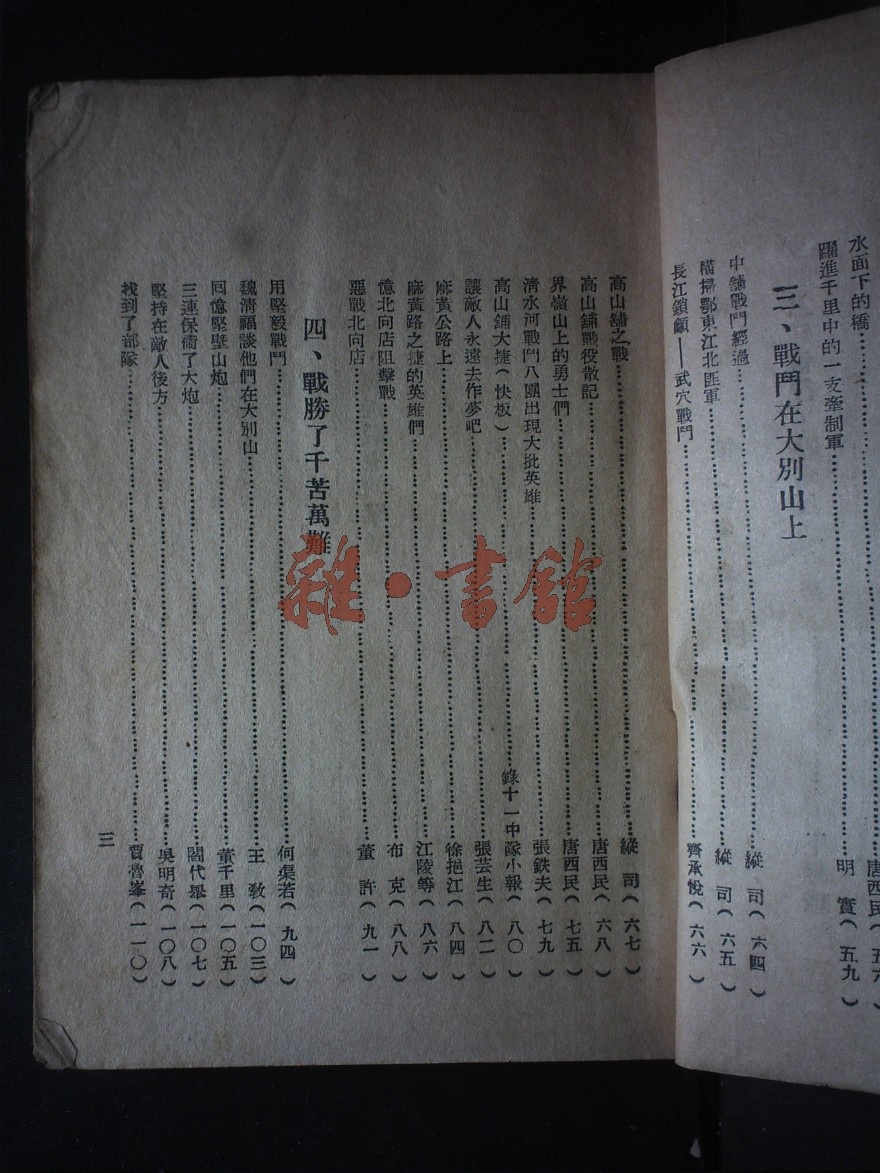 水面下的橋……唐西民(五六)
躍進千里中的一支牽制軍……明 實(五九)
三、戰鬥在大別山上
中舖戰鬥經過……縱 司(六四)
橫掃鄂東江北匪軍……縱 司(六五)
長江鎖顧——武穴戰鬥……齊承悅(六六)
高山舖之戰……縱 司(六七)
高山舖戰役散記……唐西民(六八)
界嶺山上的勇士們……唐西民(七五)
清水河戰鬥八團出現大批英雄……張鉄夫(七九)
高山舖大捷(快板)……錄十一中隊小報(八〇)
讓敵人永遠去作夢吧……張芸生(八二)
麻黃公路上……徐挹江(八四)
麻黃路之捷的英雄們……江陵等(八六)
憶北向店阻擊戰……布 克(八八)
惡戰北向店……董 許(九一)
四、戰勝了千苦萬難
用堅毅戰鬥……何渠若(九四)
魏清福談他們在大別山……王 敎(一〇三)
回憶堅壁山炮……董千里(一〇五)
三連保衛了大炮……閻代舉(一〇七)
堅持在敵人後方……吳明奇(一〇八)
找到了部隊……賈魯峯(一一〇)
三
雜·書館